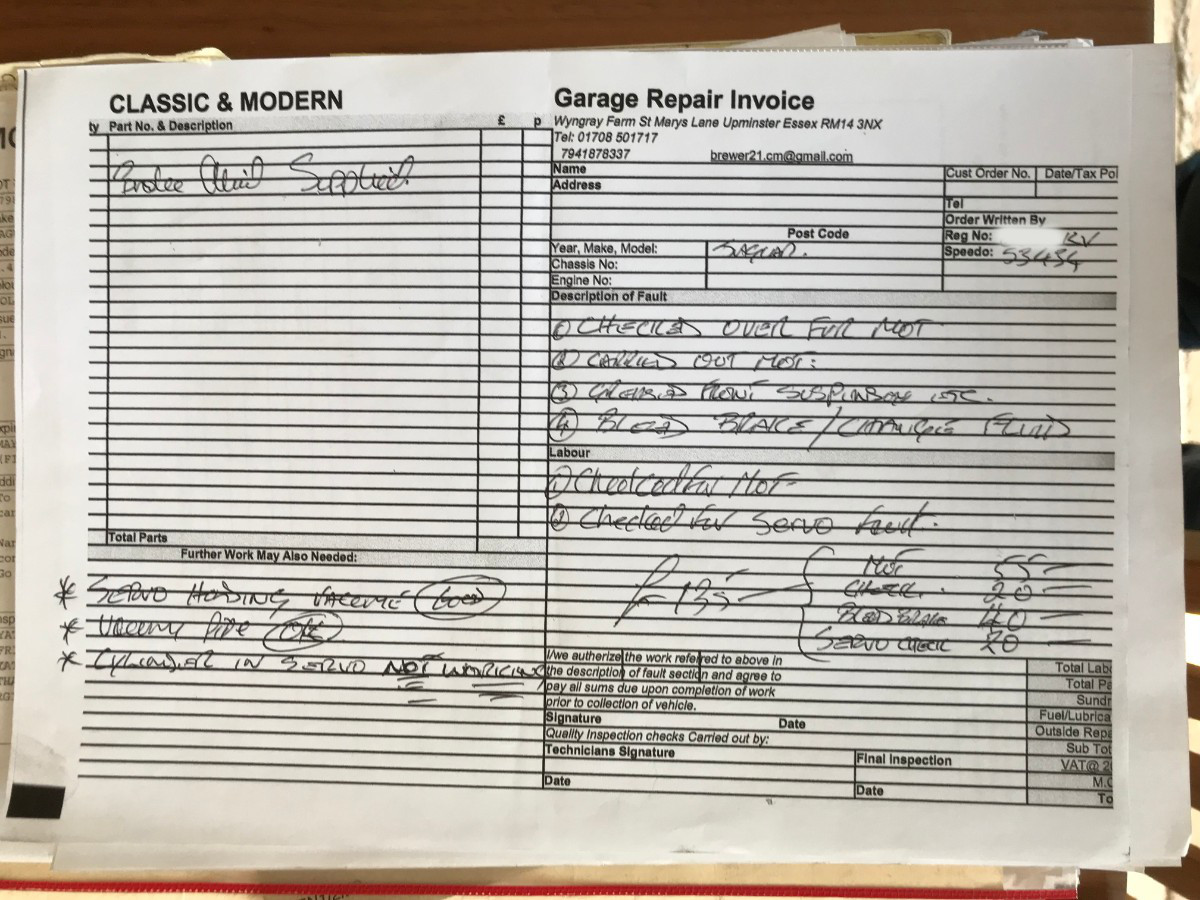 CLASSIC & MODERN
ty Part No. & Description £ p
Brake Fluid Supplied.
Total Parts
Further Work May Also Needed:
* SERVO HOLDING VACUUME GOOD
* VACUUM PIPE OK
* CYLINDER IN SERVO NOT WORKING
Garage Repair Invoice
Wyngray Farm St Marys Lane Upminster Essex RM14 3NX
Tel: 01708 501717
7941878337 brewer21.cm@gmail.com
Name
Cust Order No. Date/Tax Poi
Address
Tel
Order Written By
Post Code
Reg No: KV
Year, Make, Model: JAGUAR.
Speedo: 53434
Chassis No:
Engine No:
Description of Fault
① CHECKED OVER FUR MOT
② CARRIED OUT MOT:
③ GREASED FRONT SUSPINSON ETC.
④ BLEED BRAKE / CHANGE FLUID
Labour
① Checked for MOT
② Checked For Servo Fault.
£135 —
MOT 55 —
CHECK. 20 —
BLEED BRAKE 40 —
SERVO CHECK 20 —
I/we autherize the work refered to above in
the description of fault section and agree to
pay all sums due upon completion of work
prior to collection of vehicle.
Signature Date
Quality Inspection checks Carried out by:
Technicians Signature
Final Inspection
Date
Date
Total Labo
Total Pa
Sundr
Fuel/Lubrica
Outside Repa
Sub Tot
VAT@ 2
M.O
To